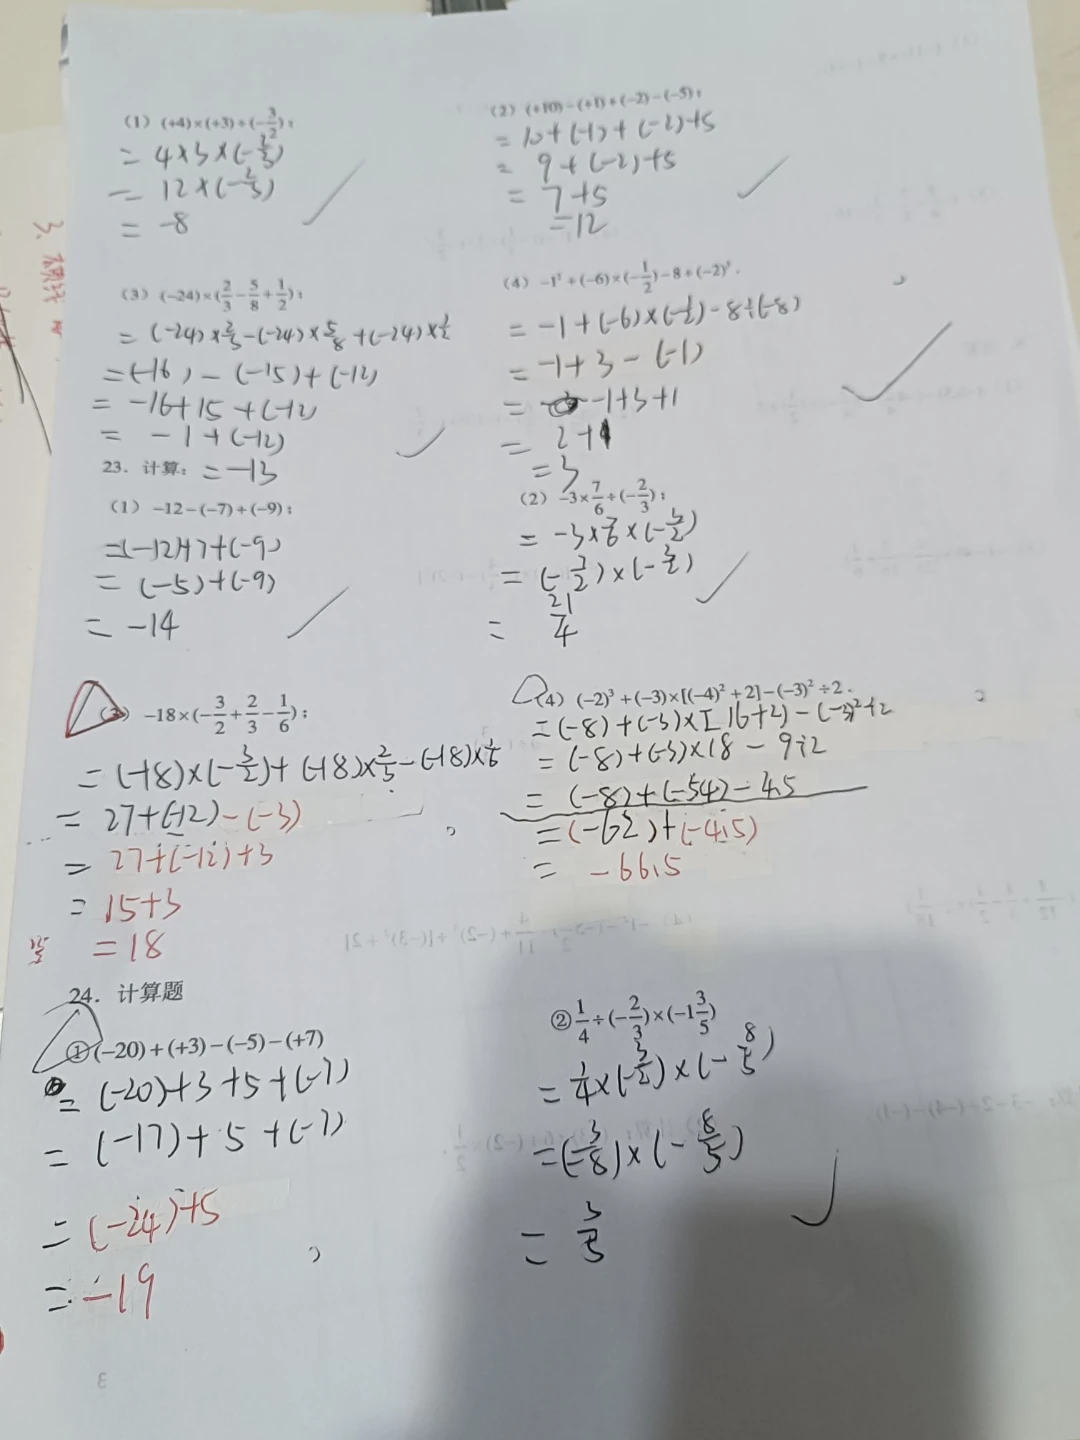 (1) (+4)×(+3)÷(-3/2);
= 4×3×(-2/3)
= 12×(-2/3)
= -8
(2) (+10)-(+1)+(-2)-(-5);
= 10+(-1)+(-2)+5
= 9+(-2)+5
= 7+5
=12
(3) (-24)×(2/3-5/8+1/2);
= (-24)×2/3-(-24)×5/8+(-24)×1/2
=(-16)-(-15)+(-12)
= -16+15+(-12)
= -1+(-12)
23. 计算: =-13
(4) -1²+(-6)×(-1/2)-8÷(-2)³.
= -1+(-6)×(-1/2)-8÷(-8)
= -1+3-(-1)
= -1+3+1
= 2+1
=3
(1) -12-(-7)+(-9);
=(-12)+7+(-9)
= (-5)+(-9)
= -14
(2) -3×7/6÷(-2/3);
= -3×7/6×(-3/2)
= (-7/2)×(-3/2)
= 21/4
(3) -18×(-3/2+2/3-1/6);
= (-18)×(-3/2)+(-18)×2/3-(-18)×1/6
= 27+(-12)-(-3)
= 27+(-12)+3
= 15+3
=18
(4) (-2)³+(-3)×[(-4)²+2]-(-3)²÷2.
=(-8)+(-3)×[16+2)-(-3)²÷2
= (-8)+(-3)×18-9÷2
= (-8)+(-54)-4.5
=(-62)+(-4.5)
= -66.5
24. 计算题
①(-20)+(+3)-(-5)-(+7)
= (-20)+3+5+(-7)
= (-17)+5+(-7)
= (-24)+5
= -19
②1/4÷(-2/3)×(-1 3/5)
= 1/4×(-3/2)×(-8/5)
=(-3/8)×(-8/5)
= 3/5
3